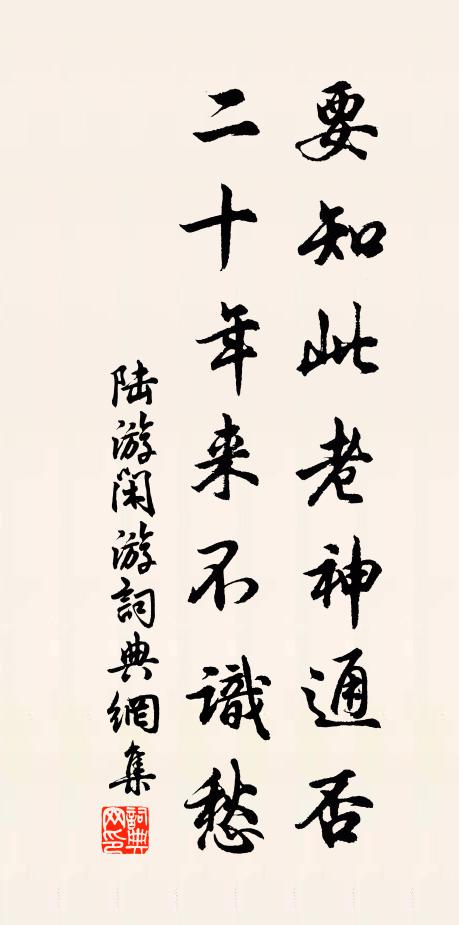 要知此老神通否
二十年来不識愁
陆游闲游詞典網集
詞典
网印